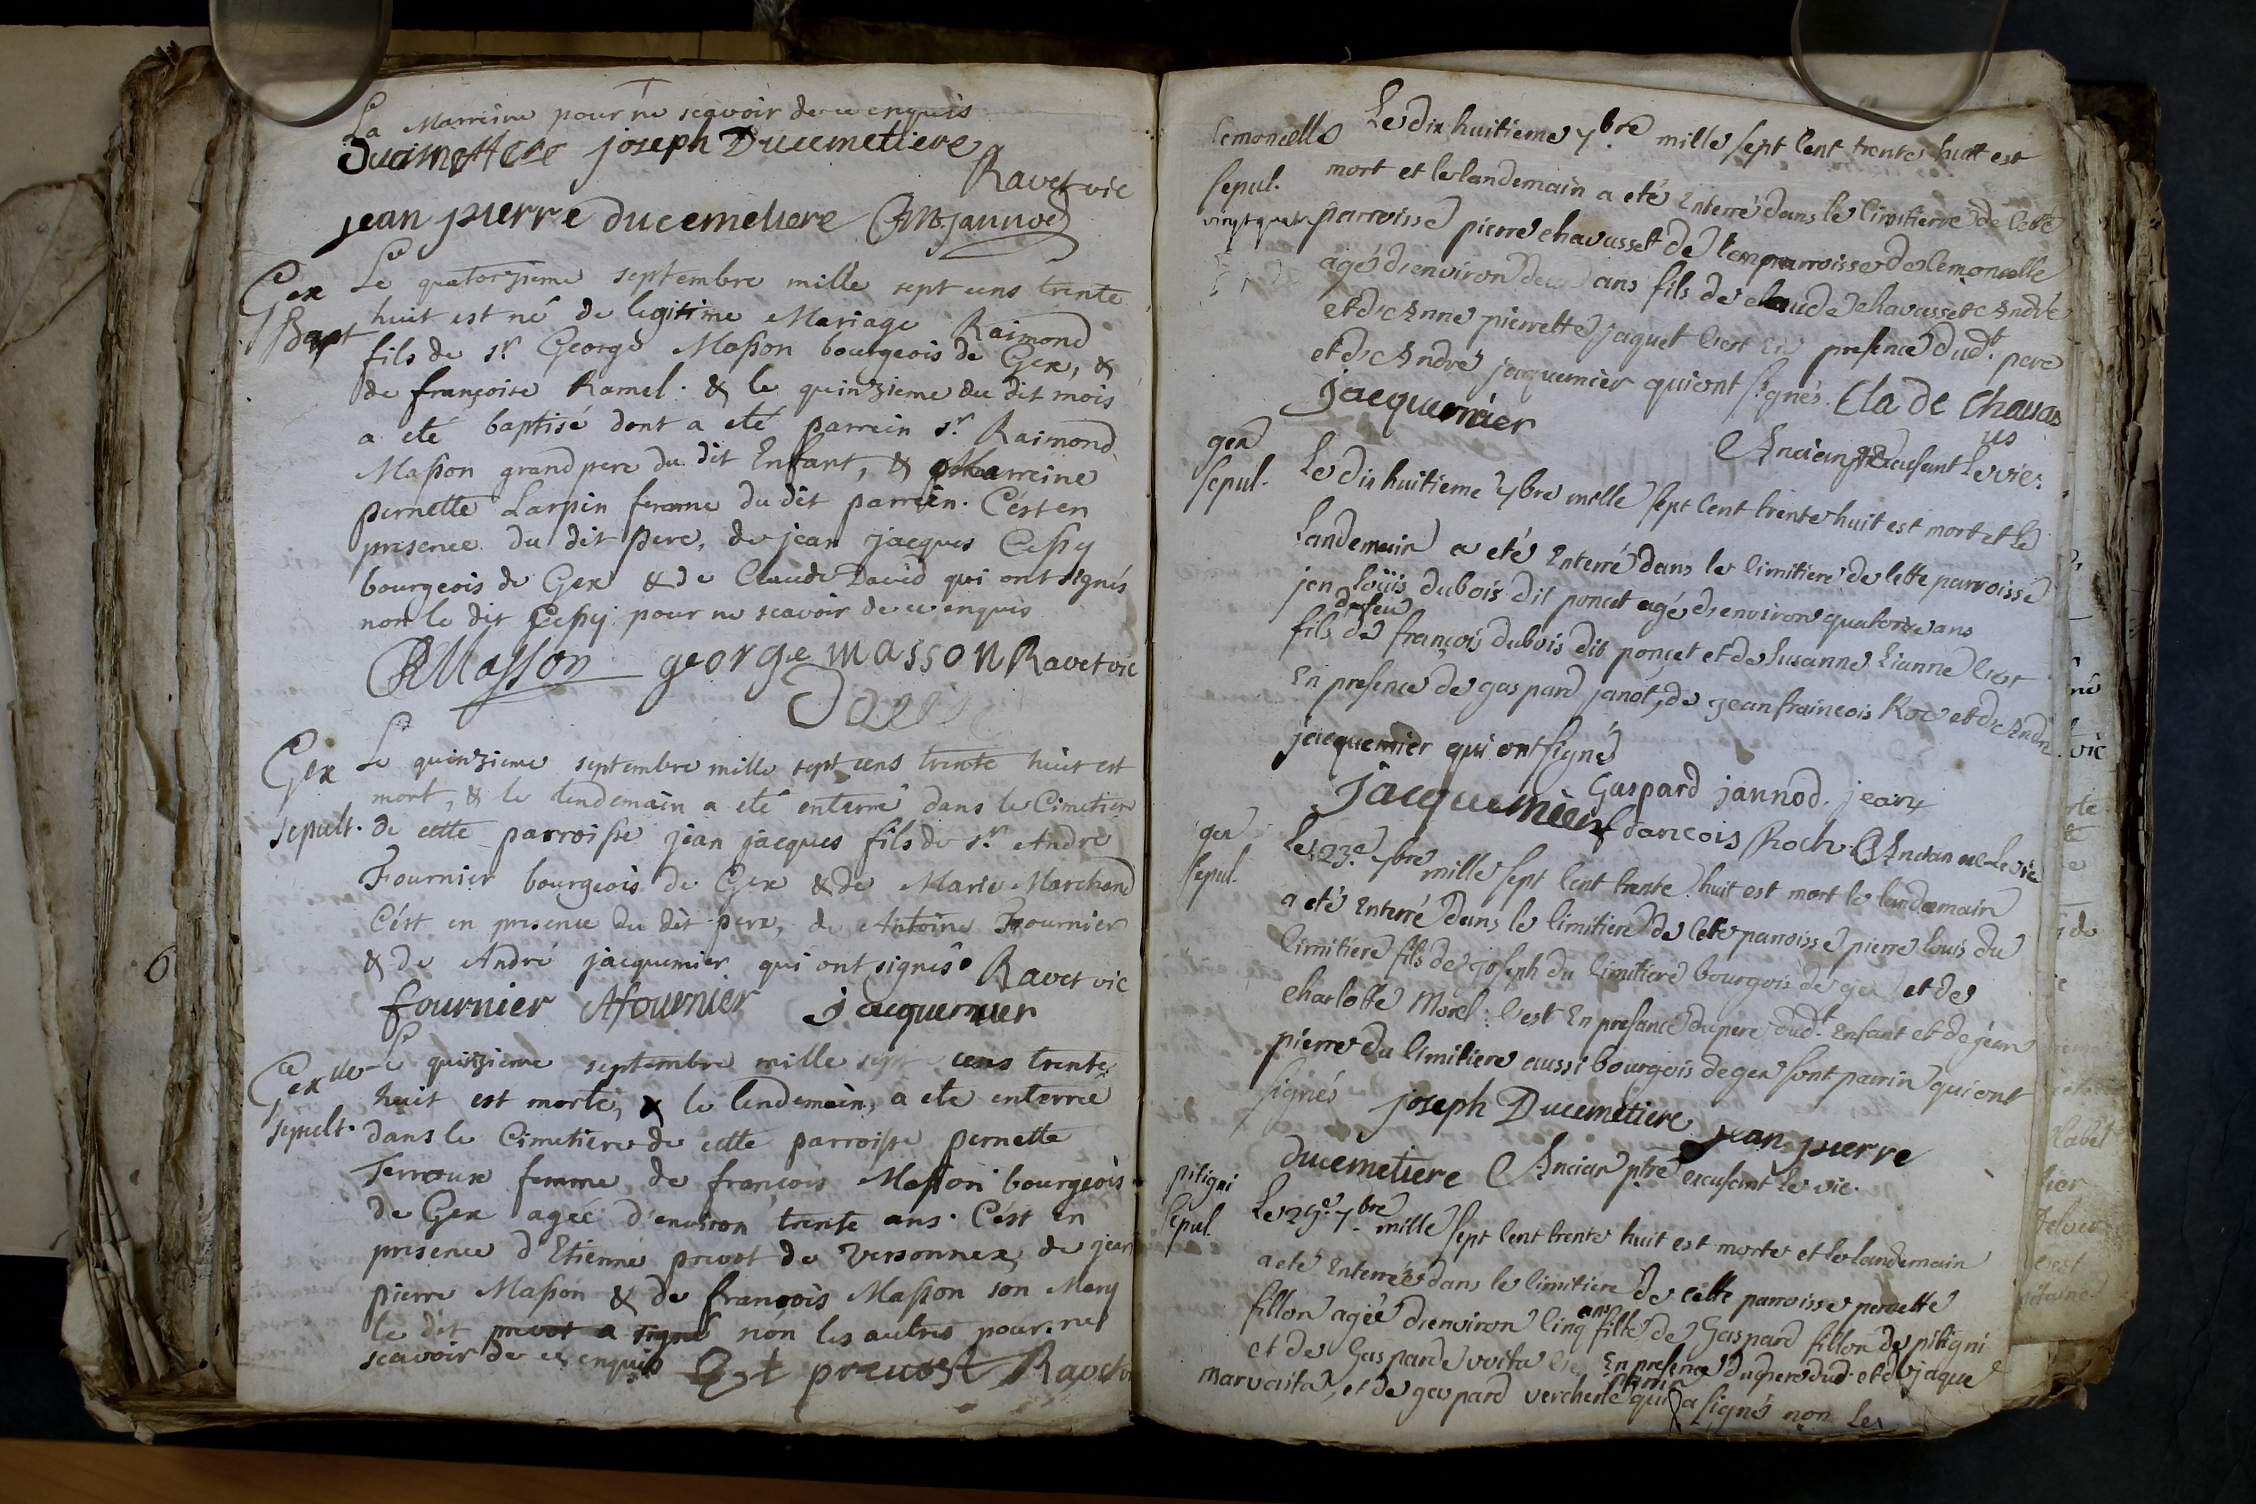 La Marreine pour ne scavoir de ce enquis
Ducimettere joseph Ducemetiere
Ravet vic
jean pierre ducemetiere jannod
Gex Le quatorzieme septembre mille sept cens trente
Bapt huit est né de legitime Mariage Raimond
fils de sr. George Masson bourgeois de Gex, &
de françoise Ramel. & le quinzieme du dit mois
a eté baptisé dont a eté parrein sr. Raimond
Masson grand pere du dit Enfant, & Marreine
pernette Larpin femme du dit parrein. C'est en
presence du dit pere, de jean jacques Cessy
bourgeois de Gex & de Claude David qui ont signés
non le dit Cessy pour ne scavoir de ce enquis
RMasson george masson Ravet vic
Gex Le quinzieme septembre mille sept cens trente huit est
mort, & le lendemain a eté enterré dans le Cimetiere
sepult. de cette parroisse jean jacques fils de sr. André
Fournier bourgeois de Gex & de Marie Marchand
C'est en presence du dit pere, de Antoine Fournier
& de André jacquemier qui ont signés Ravet vic
fournier Afournier jacquemier
Gex Le quinzieme septembre mille sept cens trente
huit est morte, & le lendemain, a eté enterrée
sepult. dans le Cimetiere de cette parroisse pernette
Terroux femme de françois Masson bourgeois
de Gex agée d'environ trente ans. C'est en
presence d'Etienne prevot de Versonnex, de jean
pierre Masson & de françois Masson son Mary
le dit prevot a signé non les autres pour ne
scavoir de ce enquis Est prevost Ravet vic
lemoncelle Le dix huitieme 7bre mille sept cent trente huit est
sepul. mort et le landemain a eté Enterré dans le Cimitierre de cette
vingt quatre parroisse pierre chavasset de parroisse de lemoncelle
agé d'environ ans fils de claude chavasset André
et de Anne pierrette jaquet c'est En presence dudt. pere
et de André jacquemier qui ont signés. Clade Chauas
jacquemier
Ancian excusant le vic.
gex Le dix huitieme 7bre mille sept cent trente huit est mort et le
sepul. landemain a eté Enterré dans le cimitiere de cette parroisse
jen loüis dubois dit poncet agé d'environ quatorze ans
fils de feu françois dubois dit poncet et de susanne c'est
En presence de gaspard janot, de jean fraincois Roc et de André
jacquemier qui ont signés
Gaspard jannod. jean
jacquemier francois Roch. Ancian le vic
gex Le 23e. 7bre mille sept cent trente huit est mort le landemain
sepul. a eté Enterré dans le cimitiere de cette parroisse pierre louis du
cimitiere fils de joseph du cimitiere bourgois de gex et de
charlotte Morel: c'est En presance du pere dudt. Enfant et de jean
pierre du cimitiere aussi bourgois de gex sont parrin qui ont
signés joseph Ducemetiere jean pierre
ducemetiere Ancian ptre excusant le vic.
pitigni Le 25e. 7bre mille sept cent trente huit est morte et le landemain
sepul. a eté Enterrée dans le cimitiere de cette parroisse pernette
fillon agée d'environ cinq ans fille de Gaspard fillon de pitigni
et de Gasparde voita En presence du pere dud. et de jaque
marvoita, et de gaspard vercherte parrin qui a signé non les